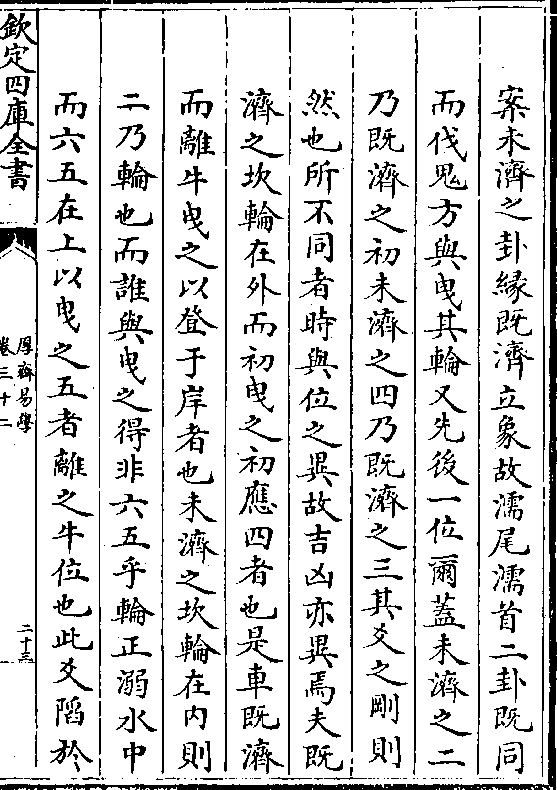 案未濟之卦緣既濟立象故濡尾濡首二卦既同
而伐鬼方與曳其輪又先後一位爾蓋未濟之二
乃既濟之初未濟之四乃既濟之三其爻之剛則
然也所不同者時與位之異故吉凶亦異焉夫既
濟之坎輪在外而初曳之初應四者也是車既濟
而離牛曳之以登于岸者也未濟之坎輪在内則
二乃輪也而誰與曳之得非六五乎輪正溺水中
而六五在上以曳之五者離之牛位也此爻陷於
欽定四庫全書
厚齋易學
卷三十二
二十三